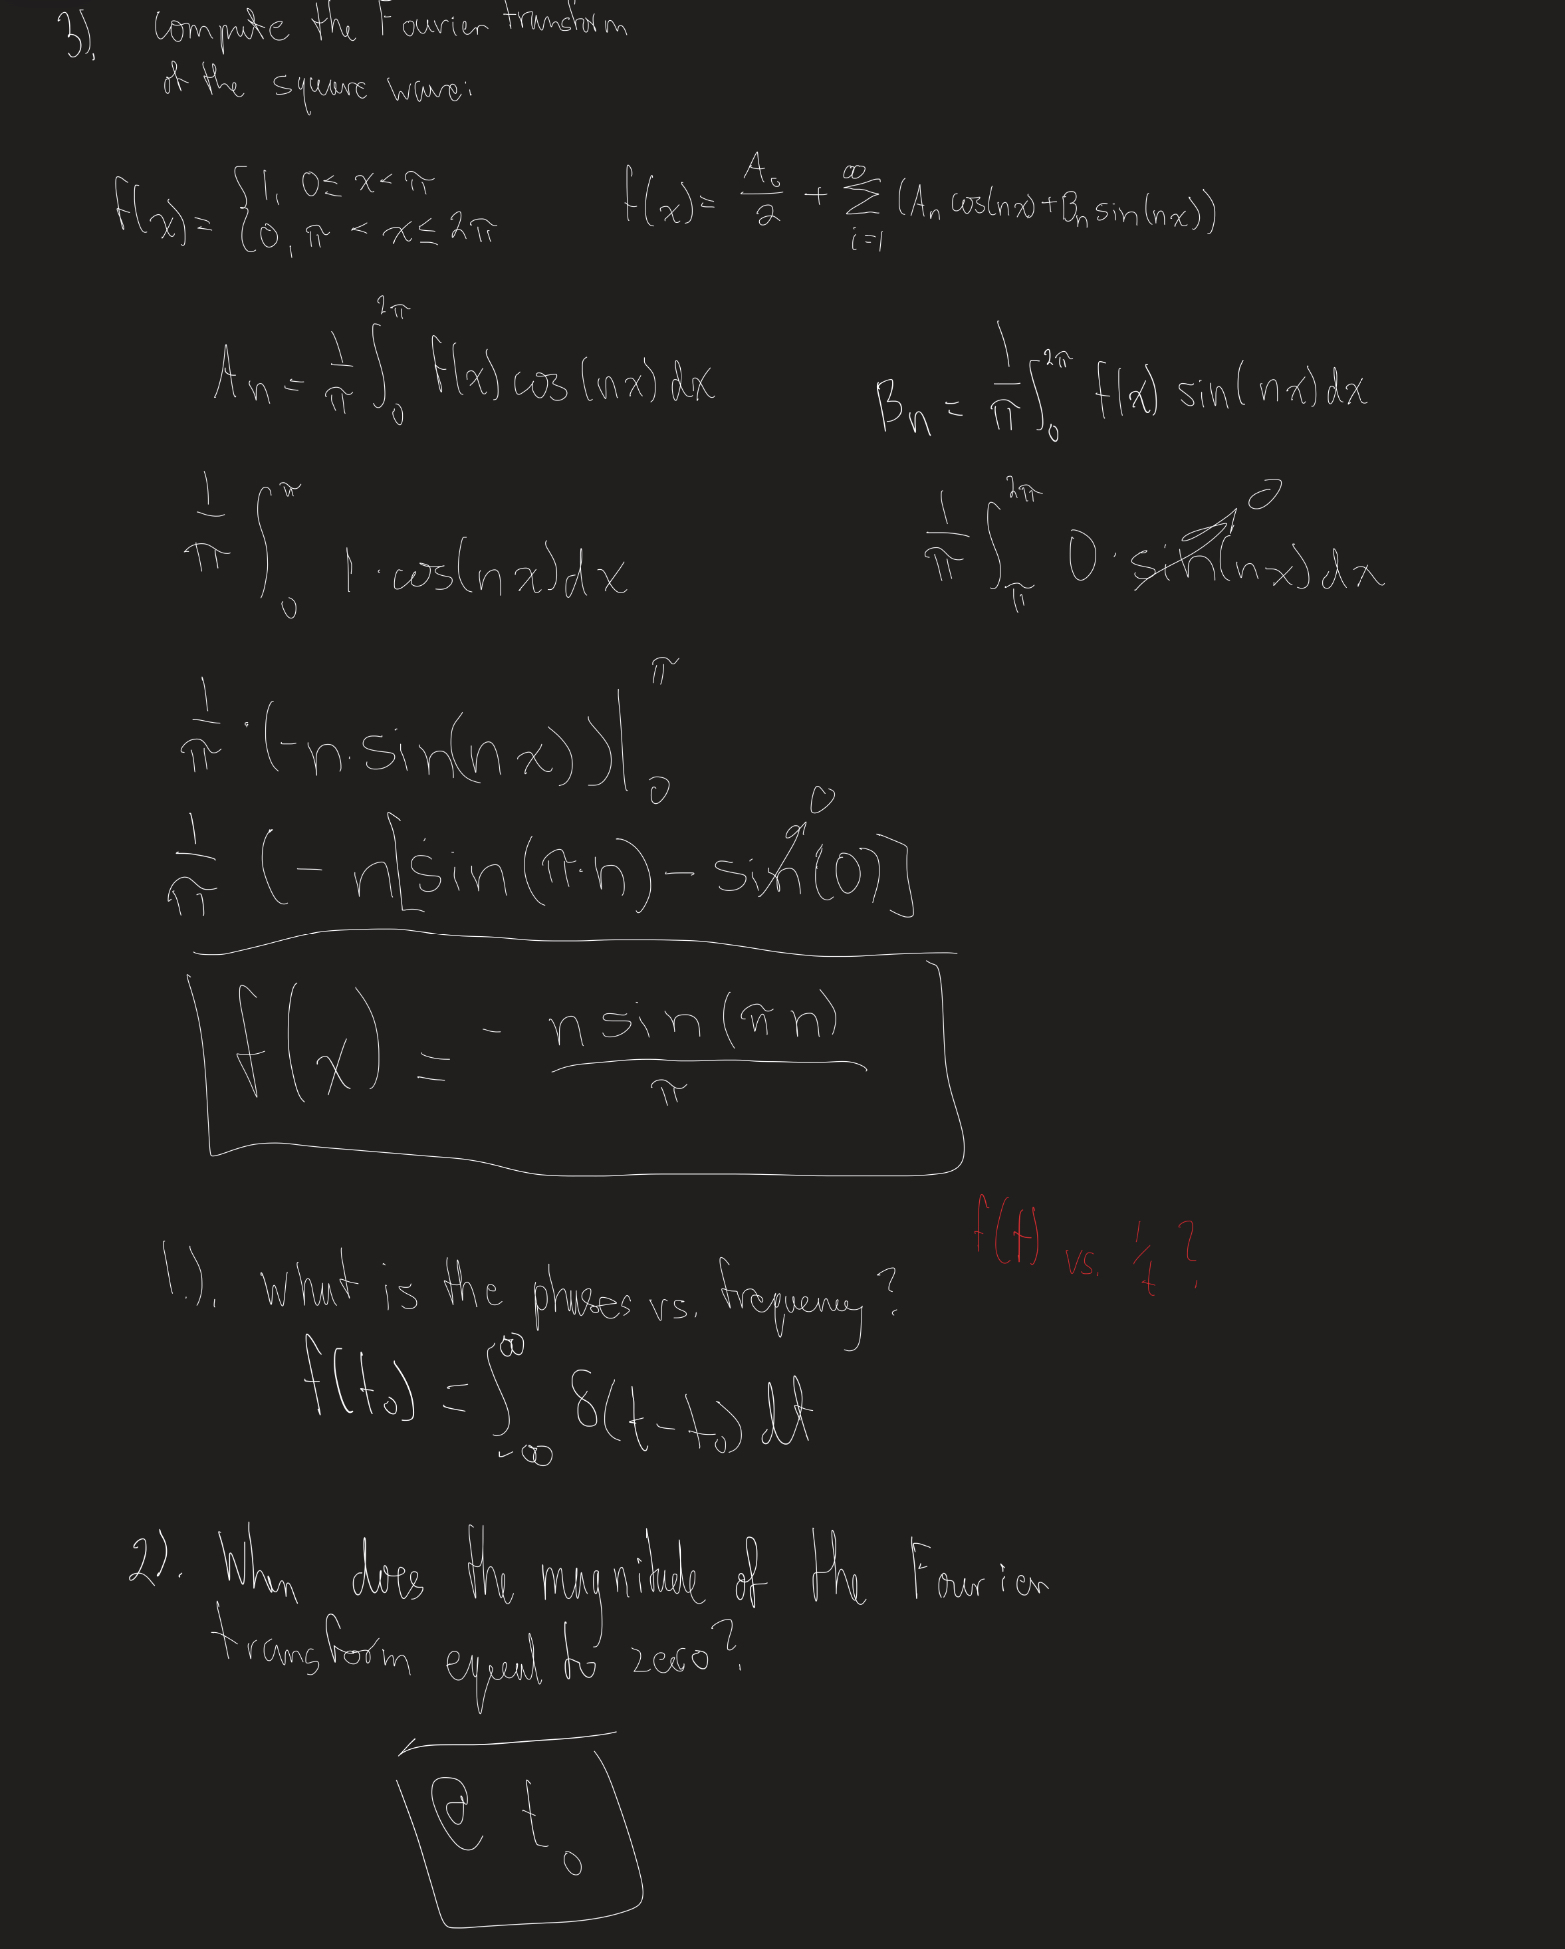 3). compute the Fourier transform
of the square wave:
f(x) = {1, 0 ≤ x < π
{0, π < x ≤ 2π
f(x) = A₀/2 + ∑_{i=1}^{∞} (Aₙ cos(nx) + Bₙ sin(nx))
Aₙ = 1/π ∫₀^{2π} f(x) cos(nx) dx
Bₙ = 1/π ∫₀^{2π} f(x) sin(nx) dx
1/π ∫₀^{π} 1 · cos(nx) dx
1/π ∫_{π}^{2π} 0 · sin(nx) dx 0
1/π · (-n · sin(nx)) |₀^{π}
1/π (-n[sin(π·n) - sin(0)] 0
f(x) = - n sin(πn) / π
f(t) vs. 1/t ?
1.). what is the phases vs. frequency?
f(t₀) = ∫_{-∞}^{∞} δ(t - t₀) dt
2). When does the magnitude of the Fourier
transform equal to zero?
@ t₀